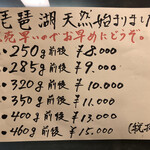 琵琶湖天然始りました
完売早いのでお早めにどうぞ。
・250g前後 ¥8.000
・285g前後 ¥9.000
・320g前後 ¥10.000
・350g前後 ¥11.000
・400g前後 ¥13.000
・460g前後 ¥15.000
(税